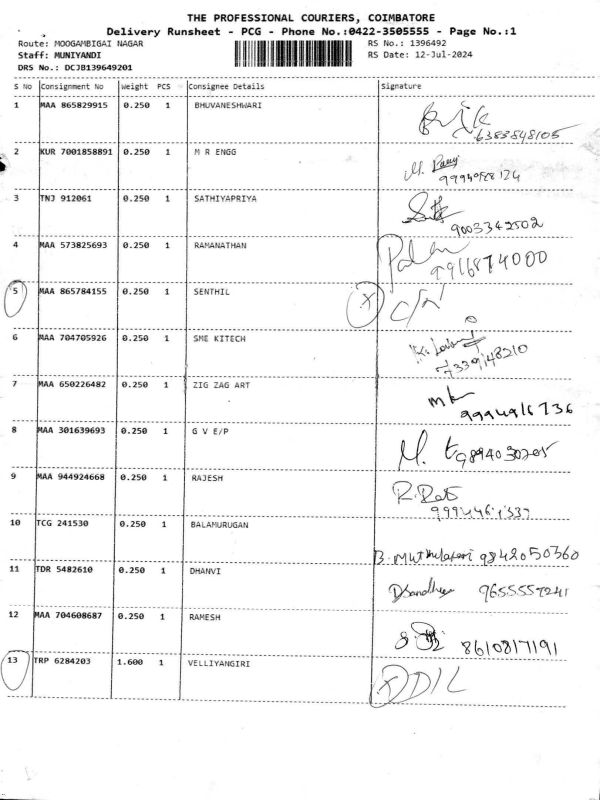 THE PROFESSIONAL COURIERS, COIMBATORE
Delivery Runsheet - PCG - Phone No.:0422-3505555 - Page No.:1
Route: MOOGAMBIGAI NAGAR RS No.: 1396492
Staff: MUNIYANDI RS Date: 12-Jul-2024
DRS No.: DCJB139649201
S No Consignment No Weight PCS Consignee Details Signature
1 MAA 865829915 0.250 1 BHUVANESHWARI
6383848105
2 KUR 7001858891 0.250 1 M R ENGG
3 TNJ 912061 0.250 1 SATHIYAPRIYA
9003342502
4 MAA 573825693 0.250 1 RAMANATHAN
9916874000
5 MAA 865784155 0.250 1 SENTHIL X
6 MAA 704705926 0.250 1 SME KITECH
7339148210
7 MAA 650226482 0.250 1 ZIG ZAG ART
9994916736
8 MAA 301639693 0.250 1 G V E/P
9 MAA 944924668 0.250 1 RAJESH
10 TCG 241530 0.250 1 BALAMURUGAN
9842050360
11 TDR 5482610 0.250 1 DHANVI DSandhiya
12 MAA 704608687 0.250 1 RAMESH 8610817191
13 TRP 6284203 1.600 1 VELLIYANGIRI X D/L